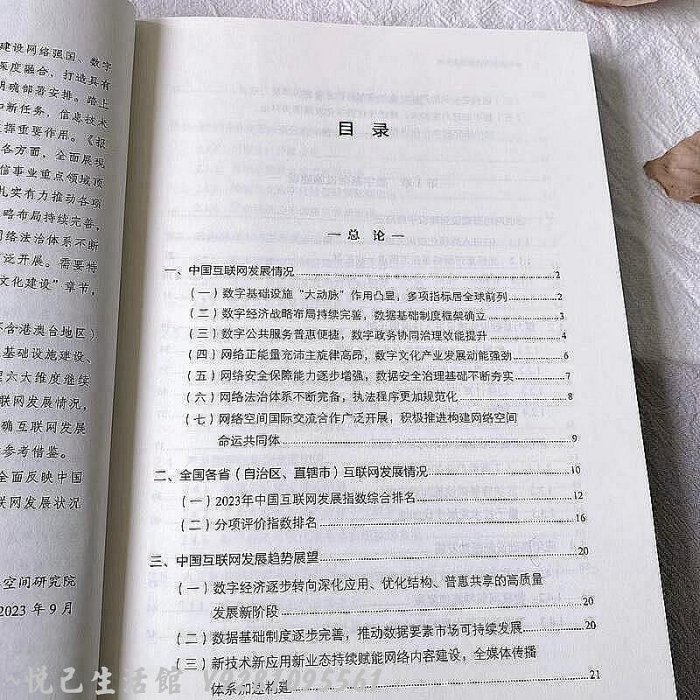 建设网络强国、数字
深度融合，打造具有
明确部署安排。踏上
和新任务，信息技术
发挥重要作用。《报
各方面，全面展现
信事业重点领域顶
扎实有力推动各项
略布局持续完善，
网络法治体系不断
泛开展。需要特
文化建设”章节，
不含港澳台地区）
基础设施建设、
六大维度继续
联网发展情况，
确互联网发展
参考借鉴。
全面反映中国
联网发展状况
空间研究院
2023 年 9 月
目 录
总 论
一、中国互联网发展情况 1
（一）数字基础设施“大动脉”作用凸显，多项指标居全球前列 2
（二）数字经济战略布局持续完善，数据基础制度框架确立 2
（三）数字公共服务普惠便捷，数字政务协同治理效能提升 4
（四）网络正能量充沛主旋律高昂，数字文化产业发展动能强劲 6
（五）网络安全保障能力逐步增强，数据安全治理基础不断夯实 7
（六）网络法治体系不断完备，执法程序更加规范化 8
（七）网络空间国际交流合作广泛开展，积极推进构建网络空间
命运共同体 9
二、全国各省（自治区、直辖市）互联网发展情况 10
（一）2023年中国互联网发展指数综合排名 12
（二）分项评价指数排名 16
三、中国互联网发展趋势展望 20
（一）数字经济逐步转向深化应用、优化结构、普惠共享的高质量
发展新阶段 20
（二）数据基础制度逐步完善，推动数据要素市场可持续发展 20
（三）新技术新应用新业态持续赋能网络内容建设，全媒体传播
体系加速构建 21
~悦己生活館